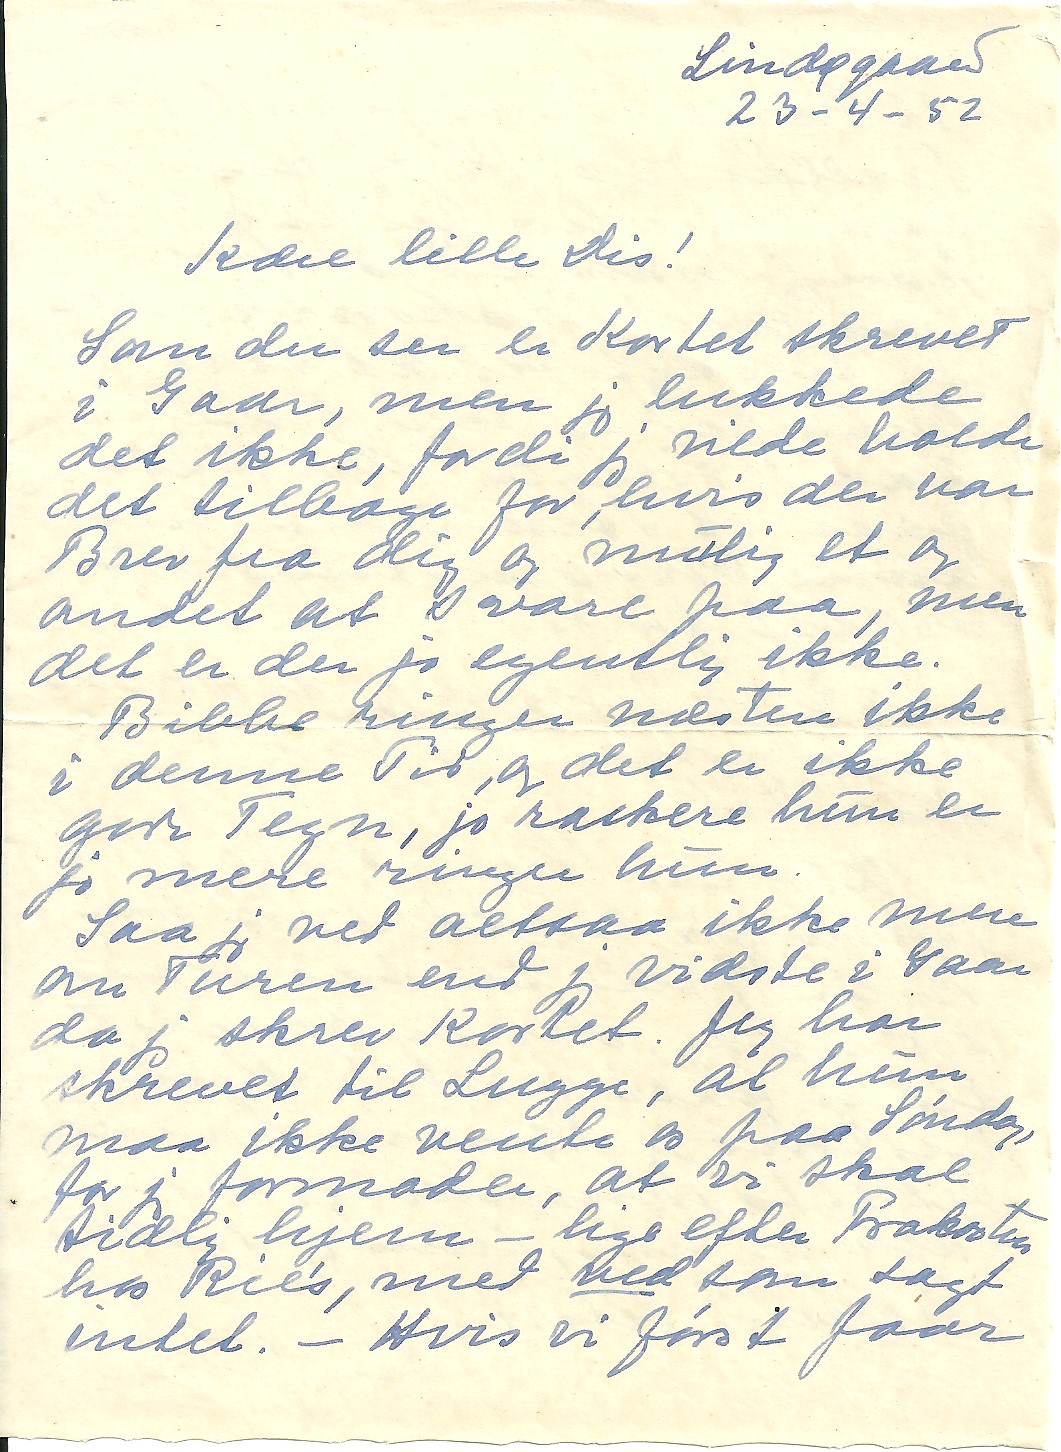 Lindøgaard
23-4-52
Kære lille Dis!
Som du ser er Kortet skrevet
i Gaar, men jg lukkede
det ikke, fordi jg vilde holde
det tilbage for, hvis der var
Brev fra dig og mulig et og
andet at svare paa, men
det er der jo egentlig ikke.
Bibbe ringer næsten ikke
i denne Tid, og det er ikke
gode Tegn, jo raskere hun er
jo mere ringer hun.
Saa jg ved altsaa ikke mere
om Turen end jg vidste i Gaar
da jg skrev Kortet. Jeg har
skrevet til Lugge, at hun
maa ikke vente os paa Søndag,
for jg formoder, at vi skal
tidlig hjem – lige efter Frokosten
hos Rie's, med ved som sagt
intet. – Hvis vi først faar